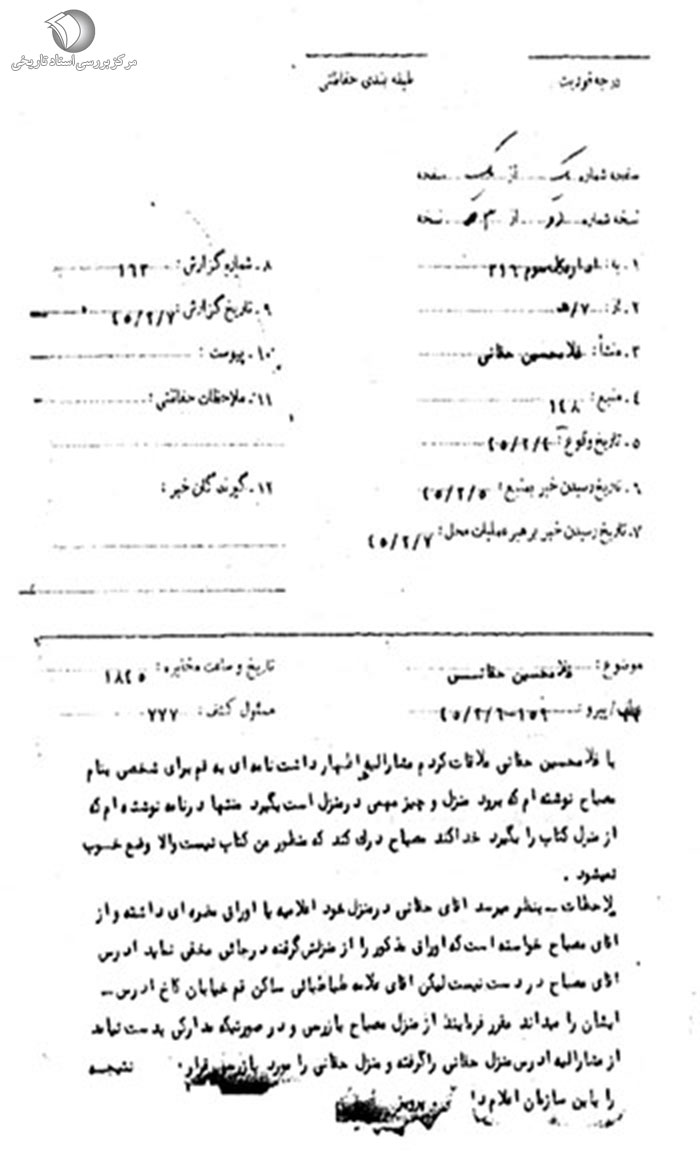 مرکز بررسی اسناد تاریخی
درجه فوریت
طبقه بندی حفاظتی
صفحه شماره یک از یک صفحه
نسخه شماره از ۳ نسخه
۱. به: اداره کل سوم ۳۱۶
۲. از: ۷/هـ
۳. منشأ: غلامحسین حقانی
۴. منبع: ۱۴۸
۵. تاریخ وقوع: ۴۵/۲/۴
۶. تاریخ رسیدن خبر بمنبع: ۴۵/۲/۵
۷. تاریخ رسیدن خبر برهبر عملیات محل: ۴۵/۲/۷
۸. شماره گزارش: ۱۶۳
۹. تاریخ گزارش: ۴۵/۲/۷
۱۰. پیوست:
۱۱. ملاحظات حفاظتی:
۱۲. گویندگان خبر:
موضوع: غلامحسین حقانی
تاریخ و ساعت مخابره: ۱۸۴۵
پیرو
مسئول کشف: ۷۷۷
با غلامحسین حقانی ملاقات کردم مشارالیه اظهار داشت نامه ای به قم برای شخصی بنام
مصباح نوشته ام که برود منزل و چیز مهمی در منزل است بگیرد منتها در نامه نوشته ام که
از منزل کتاب را بگیرد خدا کند مصباح درک کند که منظور من کتاب نیست والا وضع خوب
نمیشود .
ملاحظات ـ بنظر میرسد آقای حقانی در منزل خود اعلامیه یا اوراق مضره ای داشته و از
آقای مصباح خواسته است که اوراق مذکور را از منزلش گرفته در جائی مخفی نماید آدرس
آقای مصباح در دست نیست لیکن آقای علامه طباطبائی ساکن قم خیابان کاخ آدرس ـ
ایشان را میداند مقرر فرمایند از منزل مصباح بازرسی و در صورتیکه مدارکی بدست نیامد
از مشارالیه آدرس منزل حقانی را گرفته و منزل حقانی را مورد بازرسی قرار نتیجه
را باین سازمان اعلام